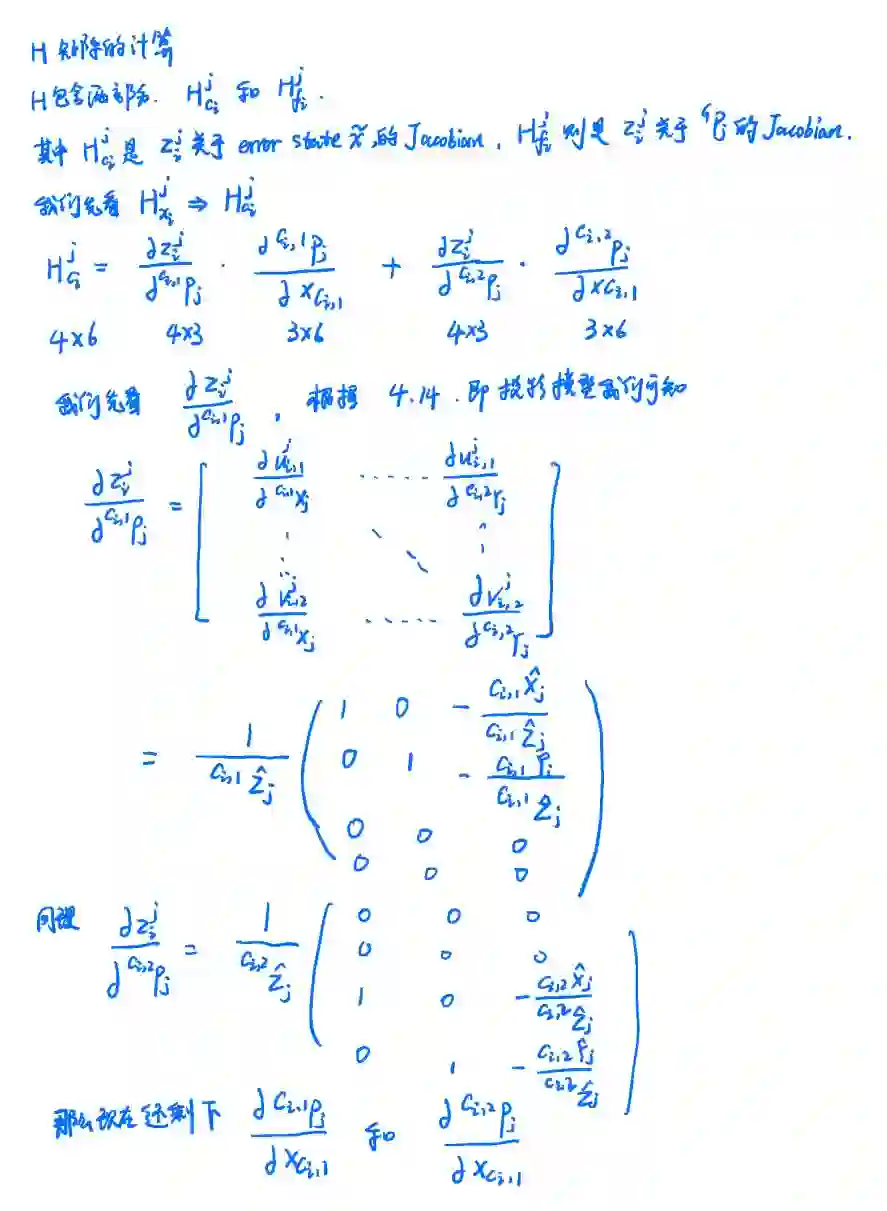 H矩阵的计算
H包含两部分. H_{C_i}^j 和 H_{f_i}^j .
其中 H_{C_i}^j 是 z_i^j 关于 error state x̃ 的 Jacobian, H_{f_i}^j 则是 z_i^j 关于 ^G P_j 的 Jacobian.
我们先看 H_{x_i}^j ⇒ H_{C_i}^j
H_{C_i}^j = ∂z_i^j / ∂^{C_{i,1}}P_j · ∂^{C_{i,1}}P_j / ∂x_{C_{i,1}} + ∂z_i^j / ∂^{C_{i,2}}P_j · ∂^{C_{i,2}}P_j / ∂x_{C_{i,1}}
4×6 4×3 3×6 4×3 3×6
我们先看 ∂z_i^j / ∂^{C_{i,1}}P_j , 根据 4.14. 即投影模型我们可知
∂z_i^j / ∂^{C_{i,1}}P_j = [ ∂u_{i,1}^j / ∂^{C_{i,1}}X_j ...... ∂u_{i,1}^j / ∂^{C_{i,2}}Y_j
∂v_{i,2}^j / ∂^{C_{i,1}}X_j ...... ∂v_{i,2}^j / ∂^{C_{i,2}}Y_j ]
= 1 / ^{C_{i,1}}Ẑ_j ( 1 0 - ^{C_{i,1}}X̂_j / ^{C_{i,1}}Ẑ_j
0 1 - ^{C_{i,1}}Ŷ_j / ^{C_{i,1}}Ẑ_j
0 0 0
0 0 0 )
同理 ∂z_i^j / ∂^{C_{i,2}}P_j = 1 / ^{C_{i,2}}Ẑ_j ( 0 0 0
0 0 0
1 0 - ^{C_{i,2}}X̂_j / ^{C_{i,2}}Ẑ_j
0 1 - ^{C_{i,2}}Ŷ_j / ^{C_{i,2}}Ẑ_j )
那么现在还剩下 ∂^{C_{i,1}}P_j / ∂x_{C_{i,1}} 和 ∂^{C_{i,2}}P_j / ∂x_{C_{i,1}}